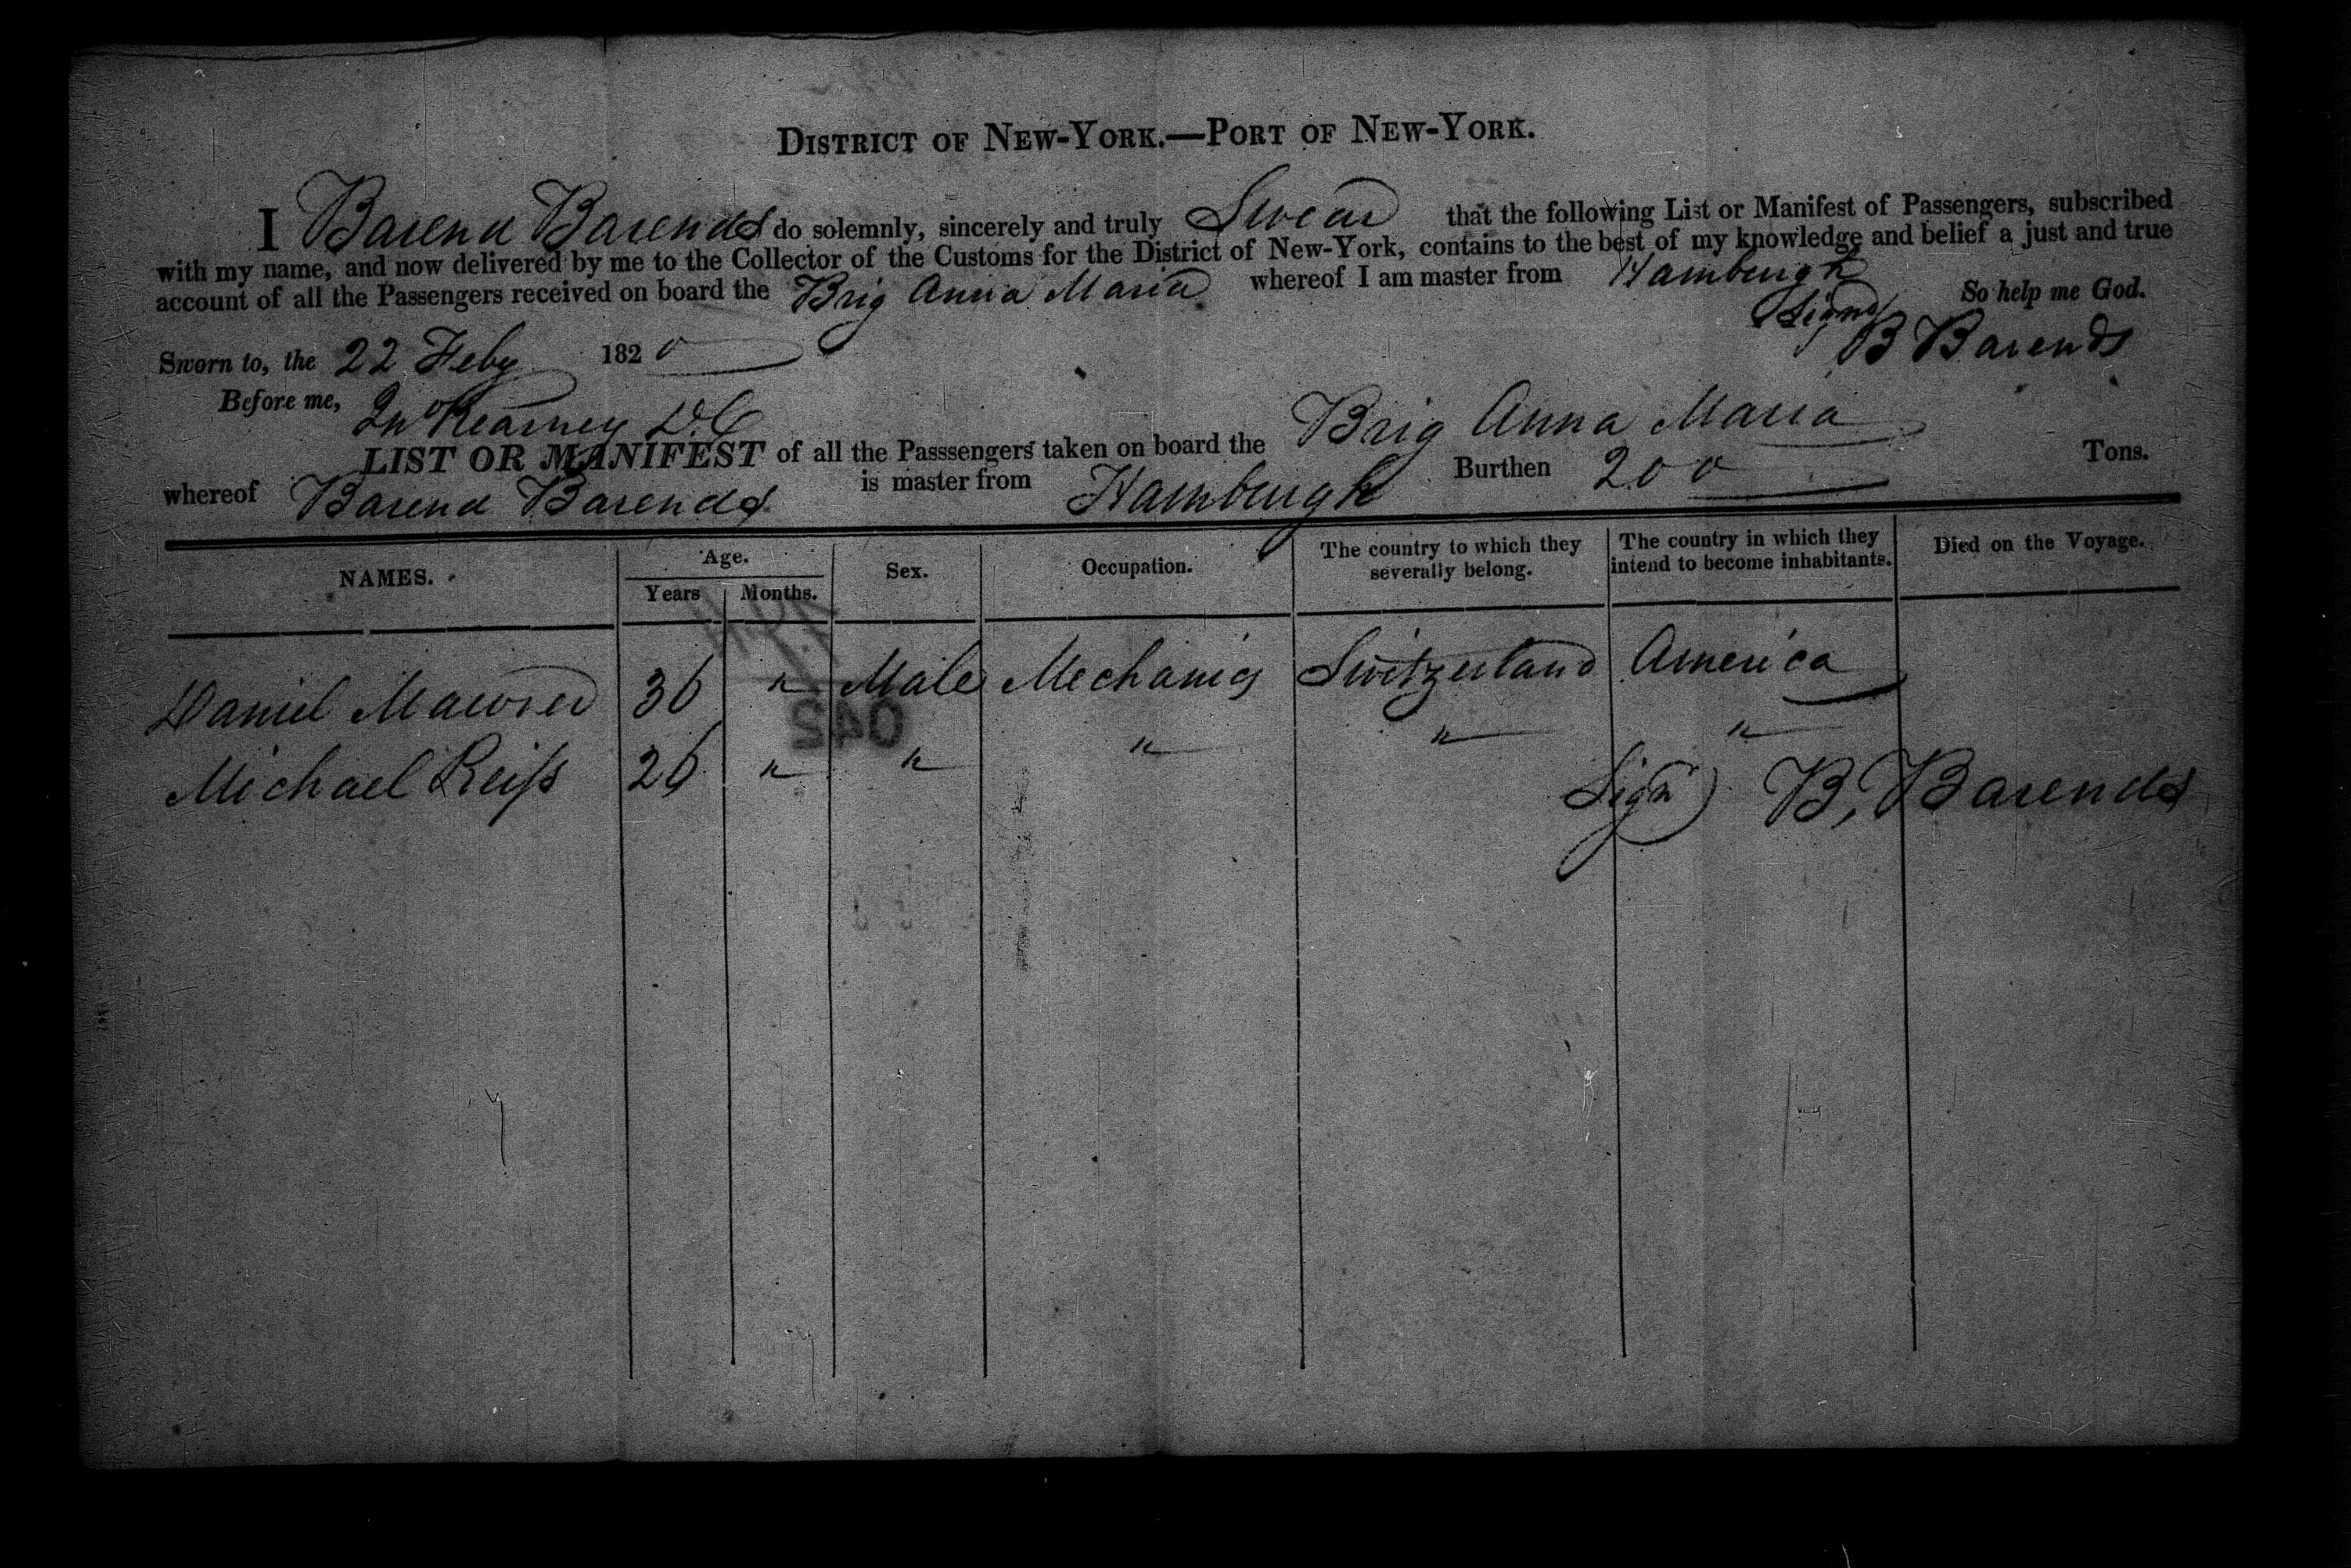 DISTRICT OF NEW-YORK.—PORT OF NEW-YORK.
I Barend Barends do solemnly, sincerely and truly Swear that the following List or Manifest of Passengers, subscribed
with my name, and now delivered by me to the Collector of the Customs for the District of New-York, contains to the best of my knowledge and belief a just and true
account of all the Passengers received on board the Brig Anna Maria whereof I am master from Hamburgh So help me God.
Signd B Barends
Sworn to, the 22 Feby 1820
Before me, Jn° Kearney D.C
LIST OR MANIFEST of all the Passsengers taken on board the Brig Anna Maria Burthen 200 Tons.
whereof Barend Barends is master from Hamburgh
NAMES. Age. Years Months. Sex. Occupation. The country to which they severally belong. The country in which they intend to become inhabitants. Died on the Voyage.
Daniel 36 " Male Mechanics Switzerland America
042
Michael Reiſs 26 " " " " "
Sign) B, Barends